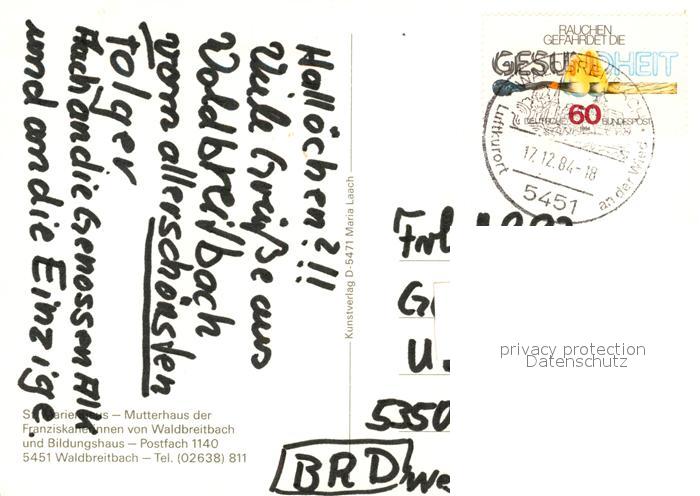 Hallöchen?!!
Viele Grüße aus
Waldbreitbach
vom allerschönsten
Folger
Auch an die Genossen
und an die Einzige.
St. Marienhaus – Mutterhaus der
Franziskanerinnen von Waldbreitbach
und Bildungshaus – Postfach 1140
5451 Waldbreitbach – Tel. (02638) 811
Kunstverlag D-5471 Maria Laach
RAUCHEN
GEFÄHRDET DIE
GESUNDHEIT
60
DEUTSCHE BUNDESPOST
Luftkurort
17.12.84-18
an der Wied
5451
Frl
5350
BRD
privacy protection
Datenschutz